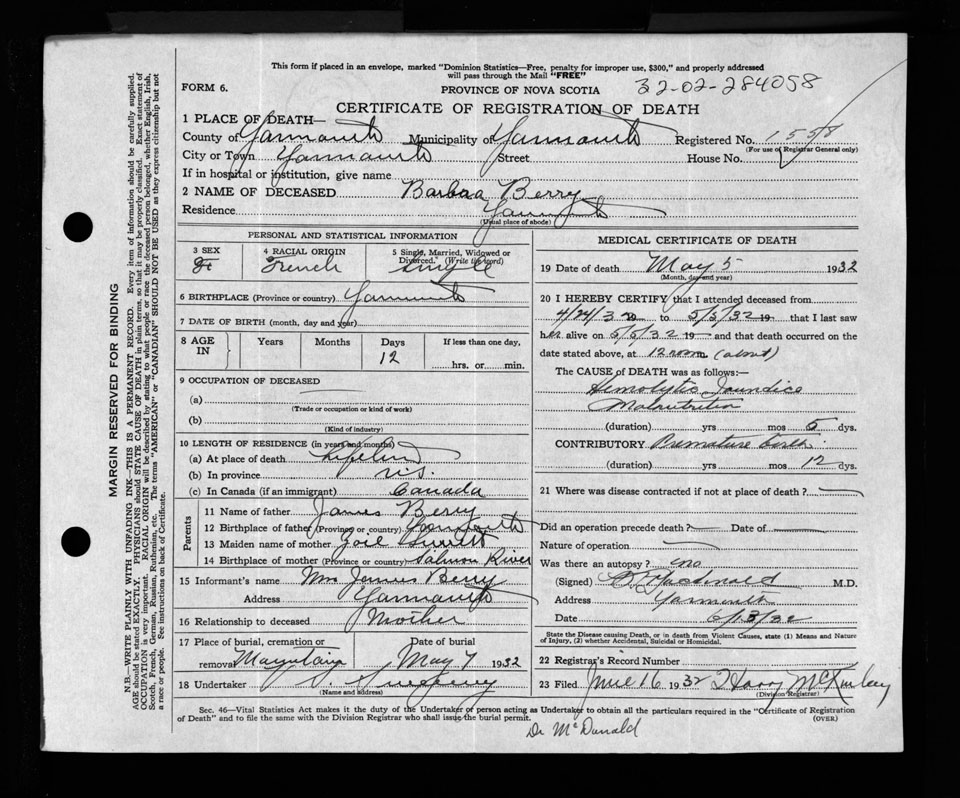 This form if placed in an envelope, marked "Dominion Statistics—Free, penalty for improper use, $300," and properly addressed
will pass through the Mail "FREE"
FORM 6.
PROVINCE OF NOVA SCOTIA
32-02-284058
CERTIFICATE OF REGISTRATION OF DEATH
1 PLACE OF DEATH—
County of Yarmouth Municipality of Yarmouth Registered No. 1558
(For use of Registrar General only)
City or Town Yarmouth Street House No.
If in hospital or institution, give name
2 NAME OF DECEASED Barbara Berry
Residence Yarmouth
(Usual place of abode)
PERSONAL AND STATISTICAL INFORMATION
3 SEX F
4 RACIAL ORIGIN French
5 Single, Married, Widowed or Divorced." (Write the word) Single
6 BIRTHPLACE (Province or country) Yarmouth
7 DATE OF BIRTH (month, day and year)
8 AGE IN Years Months Days 12 If less than one day, hrs. or min.
9 OCCUPATION OF DECEASED
(a)
(Trade or occupation or kind of work)
(b)
(Kind of industry)
10 LENGTH OF RESIDENCE (in years and months)
(a) At place of death Lifetime
(b) In province N.S.
(c) In Canada (if an immigrant) Canada
Parents
11 Name of father James Berry
12 Birthplace of father (Province or country) Yarmouth
13 Maiden name of mother Zoie Surrett
14 Birthplace of mother (Province or country) Salmon River
15 Informant's name Mrs James Berry
Address Yarmouth
16 Relationship to deceased Mother
17 Place of burial, cremation or removal
Date of burial May 7 1932
18 Undertaker
(Name and address)
MEDICAL CERTIFICATE OF DEATH
19 Date of death May 5 1932
(Month, day and year)
20 I HEREBY CERTIFY that I attended deceased from
4/24/32 19 to 5/5/32 19 that I last saw
her alive on 5/5/32 19 and that death occurred on the
date stated above, at 12 noon (about)
The CAUSE of DEATH was as follows:—
Hemolytic Jaundice
Malnutrition
(duration) yrs mos 5 dys.
CONTRIBUTORY Premature birth
(duration) yrs mos 12 dys.
21 Where was disease contracted if not at place of death?
Did an operation precede death? Date of
Nature of operation
Was there an autopsy? no
(Signed) Macdonald M.D.
Address Yarmouth
Date 6/13/32
State the Disease causing Death, or in death from Violent Causes, state (1) Means and Nature
of Injury, (2) whether Accidental, Suicidal or Homicidal.
22 Registrar's Record Number
23 Filed June 16 1932 Harry McKinley
(Division Registrar)
Sec. 46—Vital Statistics Act makes it the duty of the Undertaker or person acting as Undertaker to obtain all the particulars required in the "Certificate of Registration
of Death" and to file the same with the Division Registrar who shall issue the burial permit.
(OVER)
Dr McDonald
MARGIN RESERVED FOR BINDING
N.B.—WRITE PLAINLY WITH UNFADING INK—THIS IS A PERMANENT RECORD. Every item of information should be carefully supplied.
AGE should be stated EXACTLY. PHYSICIANS should STATE CAUSE OF DEATH in plain terms, so that it may be properly classified. Exact statement of
OCCUPATION is very important. RACIAL ORIGIN will be described by stating to what people or race the deceased person belonged, whether English, Irish,
Scotch, French, German, Russian, Ruthenian, etc. The terms "AMERICAN" or "CANADIAN" SHOULD NOT BE USED as they express citizenship but not
a race or people. See instructions on back of Certificate.